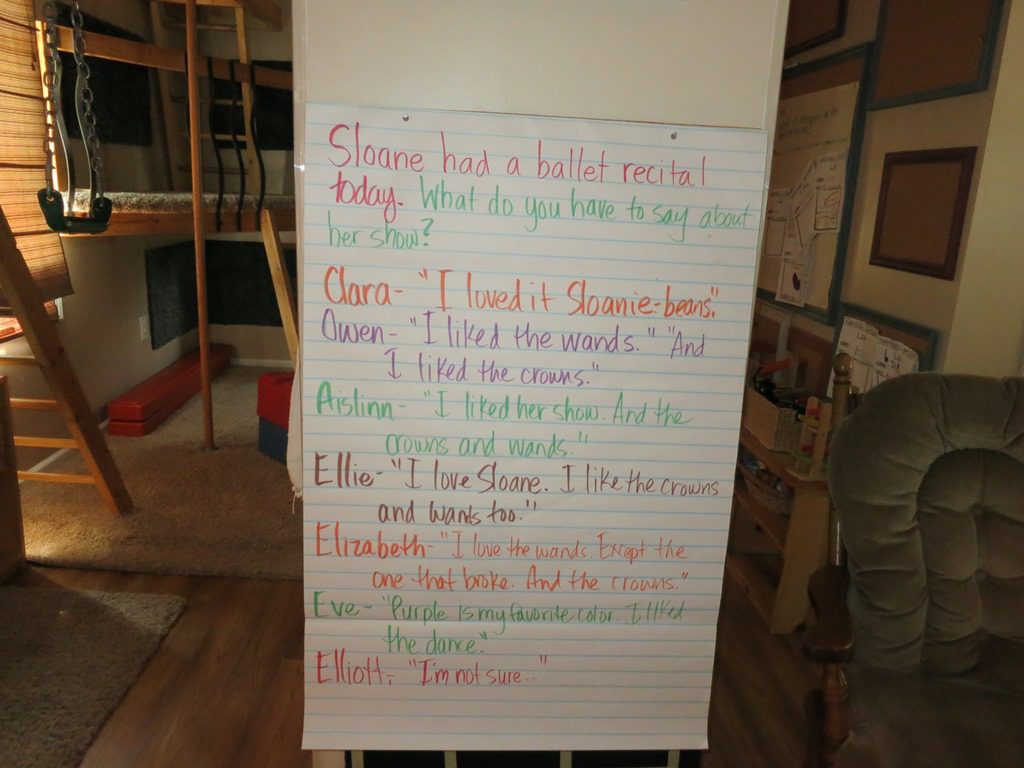 Sloane had a ballet recital
today. What do you have to say about
her show?
Clara- "I loved it Sloanie-beans."
Owen- "I liked the wands." "And
I liked the crowns."
Aislinn- "I liked her show. And the
crowns and wands."
Ellie- "I love Sloane. I like the crowns
and wants too."
Elizabeth- "I love the wands. Except the
one that broke. And the crowns."
Eve- "Purple is my favorite color. I liked
the dance."
Elliott- "I'm not sure..."